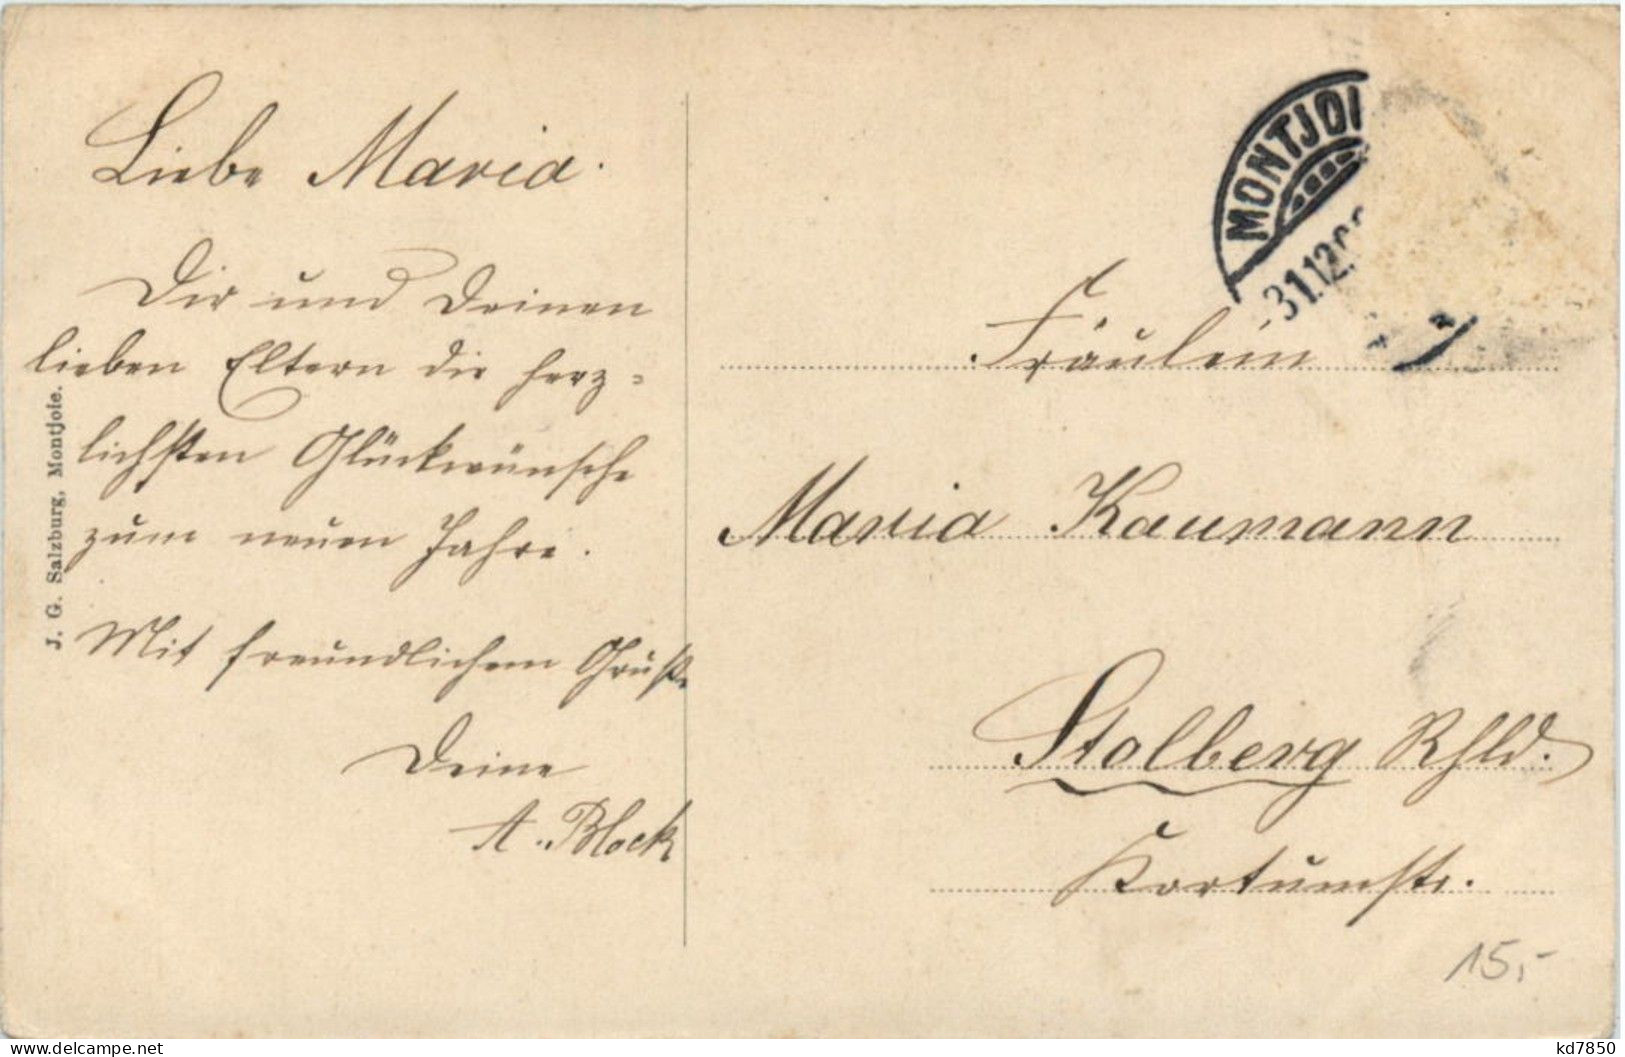 Liebe Maria.
Dir und Deinen
lieben Eltern die herz=
lichsten Glückwünsche
zum neuen Jahre.
Mit freundlichem Gruße
Deine
A. Block
J. G. Salzburg, Montjoie.
MONTJOI
31.12.
Fräulein
Maria Kaumann
Stolberg Rhld.
Kortumstr.
15,-
www.delcampe.net
kd7850